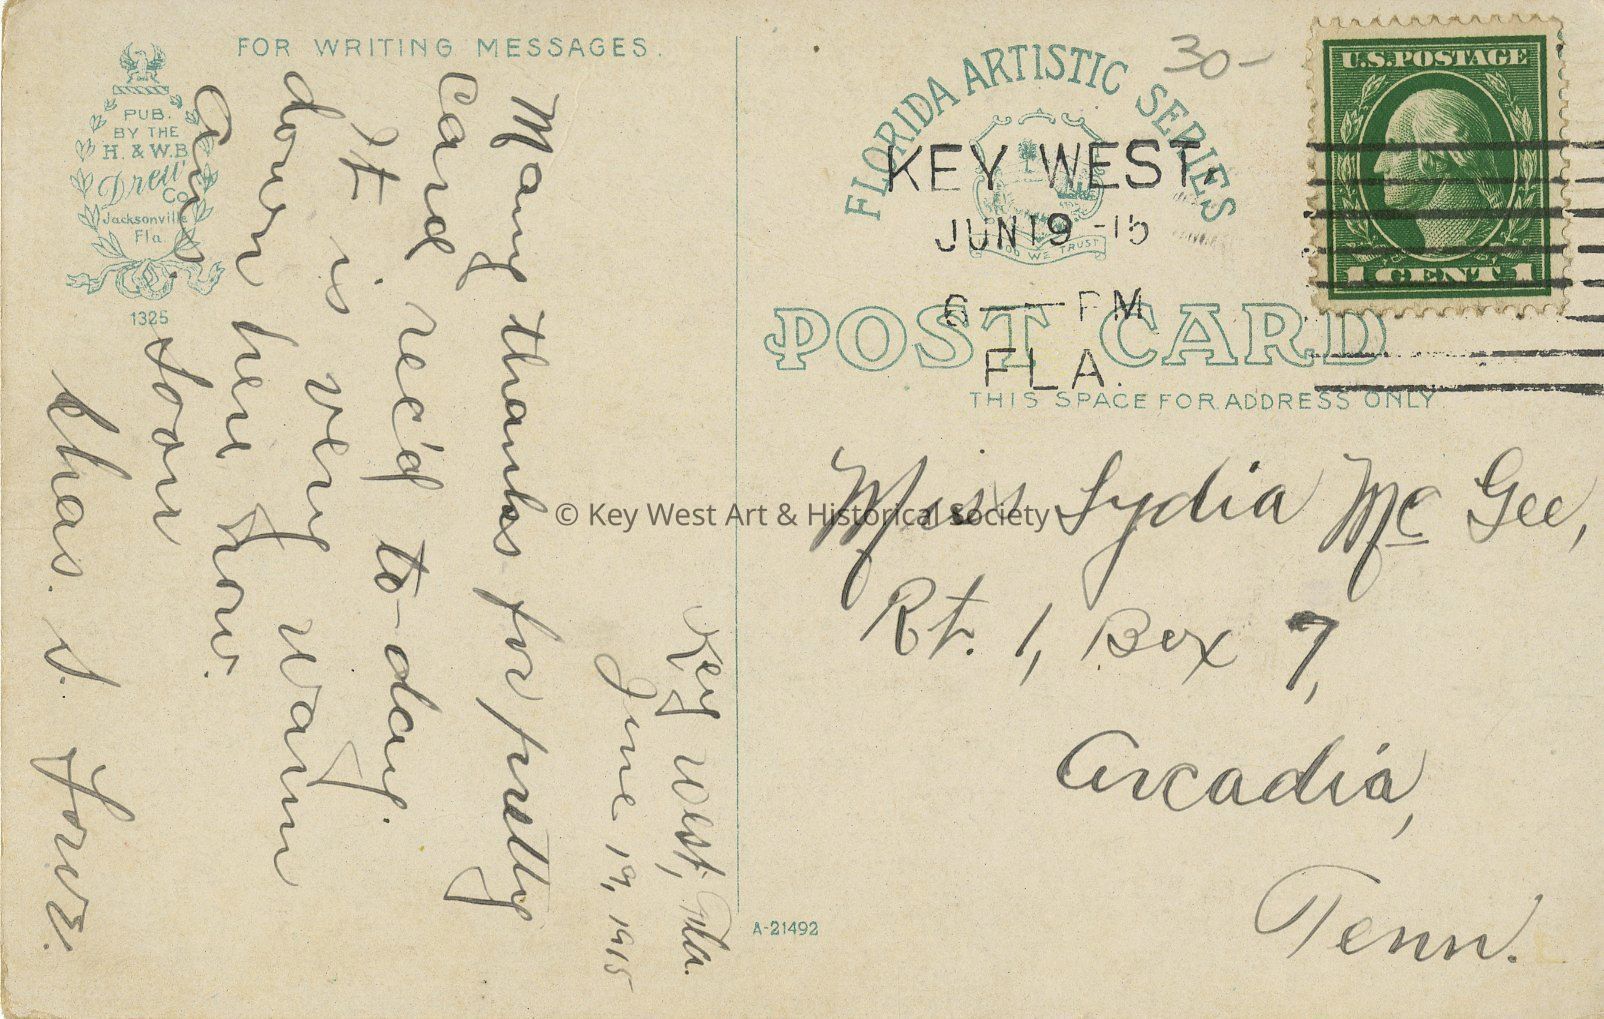 FOR WRITING MESSAGES.
PUB.
BY THE
H. & W.B.
Drew
Co.
Jacksonville
Fla.
1325
Key West, Fla.
June 19, 1915
Many thanks for pretty
Card rec'd to-day.
It is very warm
down here now.
Ans. soon
Chas. S.
FLORIDA ARTISTIC SERIES
WE TRUST
30-
KEY WEST,
JUN 19 -15
6 — PM
FLA.
U.S. POSTAGE
1 CENT 1
POST CARD
THIS SPACE FOR ADDRESS ONLY
Miss Lydia Mc Gee,
Rt. 1, Box 7,
Arcadia,
Tenn.
A-21492
© Key West Art & Historical Society